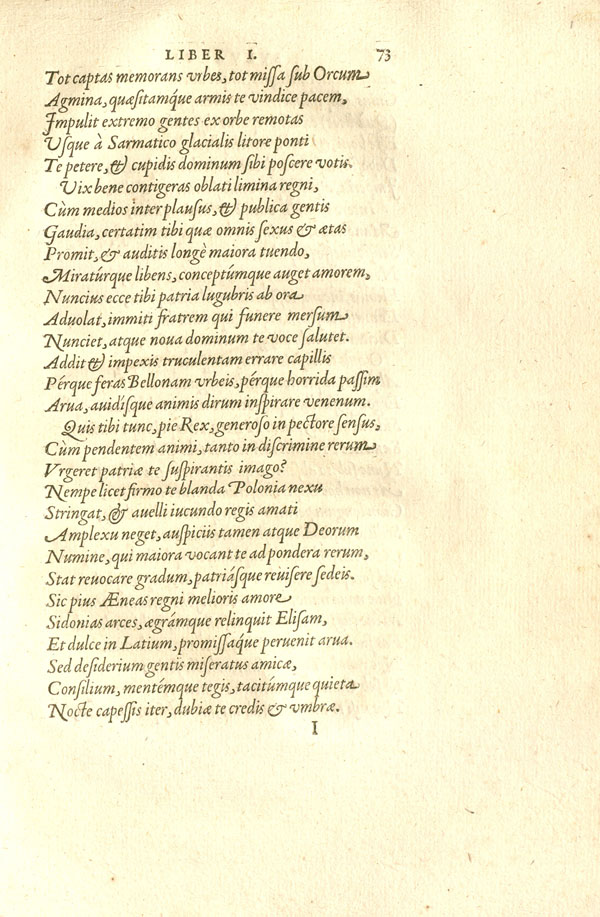 LIBER I. 73
Tot captas memorans vrbes, tot missa sub Orcum
Agmina, quæsitamq́ue armis te vindice pacem,
Impulit extremo gentes ex orbe remotas
Usque à Sarmatico glacialis litore ponti
Te petere, & cupidis dominum sibi poscere votis.
Vix bene contigeras oblati limina regni,
Cùm medios inter plausus, & publica gentis
Gaudia, certatim tibi quæ omnis sexus & ætas
Promit, & auditis longè maiora tuendo,
Miratúrque libens, conceptúmque auget amorem,
Nuncius ecce tibi patria lugubris ab ora
Aduolat, immiti fratrem qui funere mersum
Nunciet, atque noua dominum te voce salutet.
Addit & impexis truculentam errare capillis
Pérque feras Bellonam vrbeis, pérque horrida passim
Arua, auidisque animis dirum inspirare venenum.
Quis tibi tunc, pie Rex, generoso in pectore sensus,
Cùm pendentem animi, tanto in discrimine rerum
Vrgeret patriæ te suspirantis imago?
Nempe licet firmo te blanda Polonia nexu
Stringat, & auelli iucundo regis amati
Amplexu neget, auspiciis tamen atque Deorum
Numine, qui maiora vocant te ad pondera rerum,
Stat reuocare gradum, patriásque reuisere sedeis.
Sic pius Æneas regni melioris amore
Sidonias arces, ægrámque relinquit Elisam,
Et dulce in Latium, promissaq́ue peruenit arua.
Sed desiderium gentis miseratus amicæ,
Consilium, mentémque tegis, tacitúmque quieta
Nocte capessis iter, dubiæ te credis & vmbræ.
I